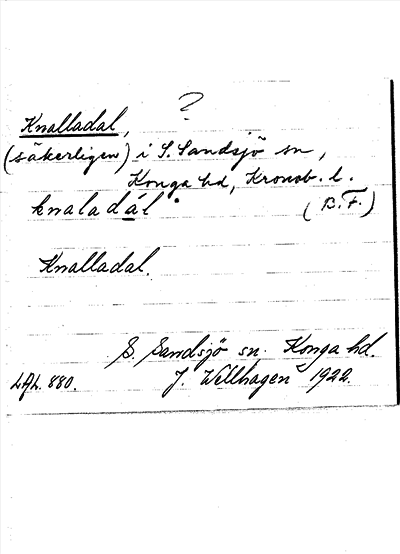 ?
Knalladal,
(säkerligen) i S. Sandsjö sn,
Konga hd, Kronob. l.
knaladál
(B. F.)
Knalladal.
S. Sandsjö sn. Konga hd.
LAL. 880. J. Wellhagen 1922.